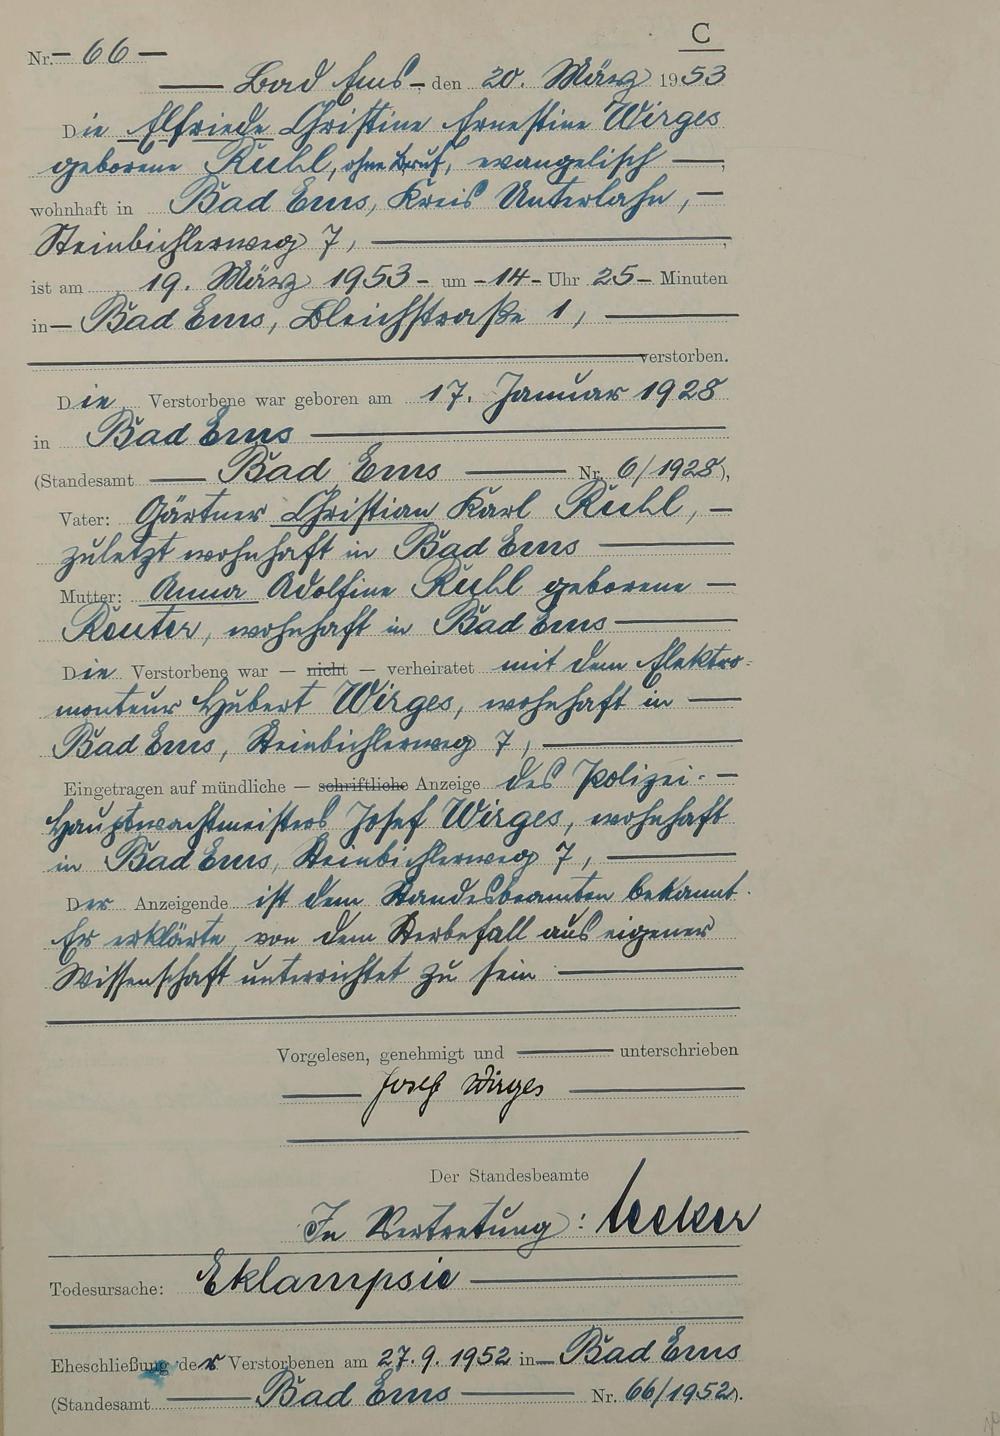 C
Nr. — 66 —
Bad Ems - den 20. März 1953
Die Elfriede Christine Ernestine Wirges
geborene Ruhl, ohne Beruf, evangelisch —,
wohnhaft in Bad Ems, Kreis Unterlahn, —
Steinbichlerweg 7, —
ist am 19. März 1953 - um - 14 - Uhr 25 - Minuten
in — Bad Ems, Bleichstraße 1, —
verstorben.
Die Verstorbene war geboren am 17. Januar 1928
in Bad Ems —
(Standesamt — Bad Ems — Nr. 6/1928),
Vater: Gärtner Christian Karl Ruhl, —
zuletzt wohnhaft in Bad Ems —
Mutter: Anna Adolfine Ruhl geborene —
Reuter, wohnhaft in Bad Ems —
Die Verstorbene war — nicht — verheiratet mit dem Elektro-
monteur Hubert Wirges, wohnhaft in —
Bad Ems, Steinbichlerweg 7, —
Eingetragen auf mündliche — schriftliche Anzeige des Polizei- —
Hauptwachtmeisters Josef Wirges, wohnhaft
in Bad Ems, Steinbichlerweg 7, —
Der Anzeigende ist dem Standesbeamten bekannt.
Er erklärte, von dem Sterbefall aus eigener
Wissenschaft unterrichtet zu sein —
Vorgelesen, genehmigt und — unterschrieben
— Josef Wirges —
Der Standesbeamte
In Vertretung:
Todesursache: Eklampsie —
Eheschließung der Verstorbenen am 27.9.1952 in — Bad Ems
(Standesamt — Bad Ems — Nr. 66/1952).